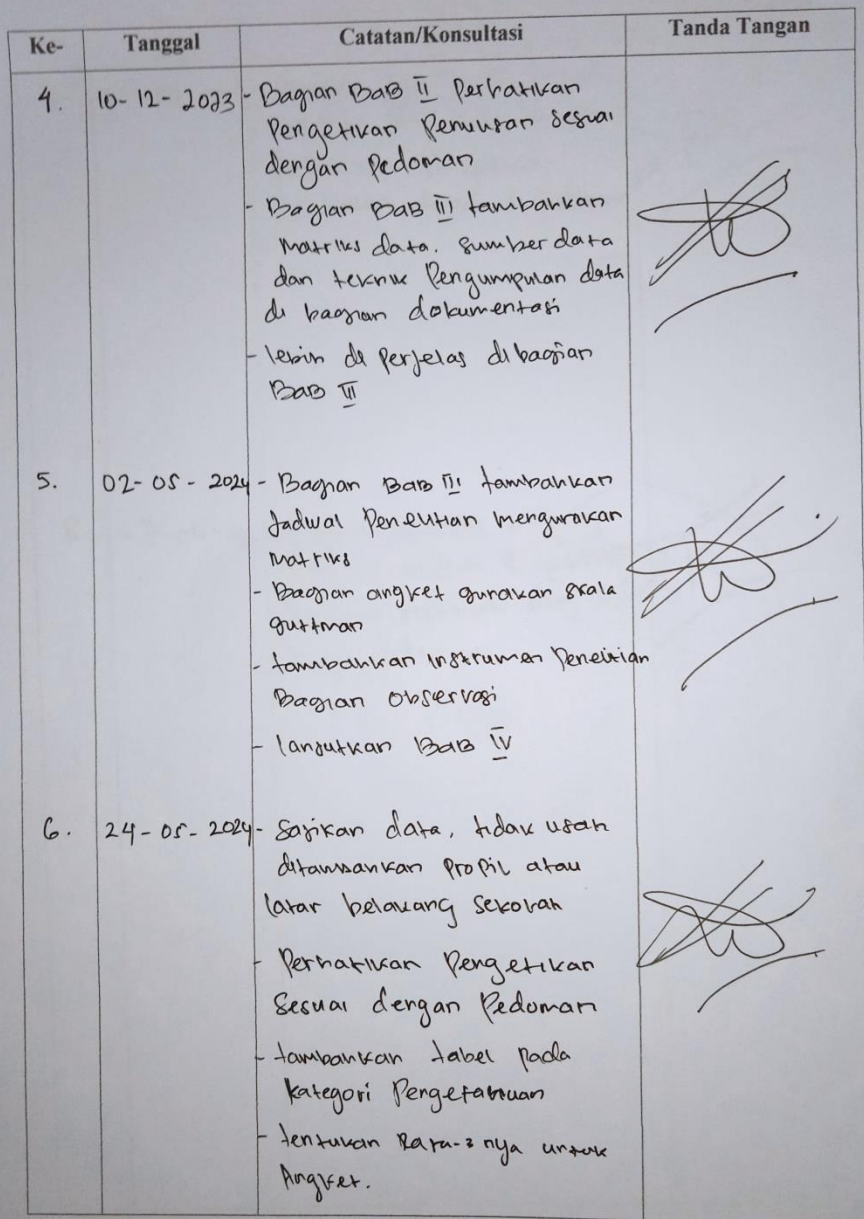 Ke- Tanggal Catatan/Konsultasi Tanda Tangan
4. 10-12-2023 - Bagian BAB II Perhatikan
Pengetikan Penulisan sesuai
dengan Pedoman
- Bagian BAB III tambahkan
Matriks data. Sumber data
dan teknik Pengumpulan data
di bagian dokumentasi
- lebih di Perjelas di bagian
BAB III
5. 02-05-2024 - Bagian BAB III tambahkan
Jadwal Penelitian menggunakan
Matriks
- Bagian angket gunakan skala
guttman
- tambahkan Instrumen Penelitian
Bagian Observasi
- lanjutkan BAB IV
6. 24-05-2024 - Sajikan data, tidak usah
ditambahkan Propil atau
latar belakang sekolah
- Perhatikan Pengetikan
Sesuai dengan Pedoman
- tambahkan tabel pada
kategori Pengetahuan
- tentukan Rata-2 nya untuk
Angket.